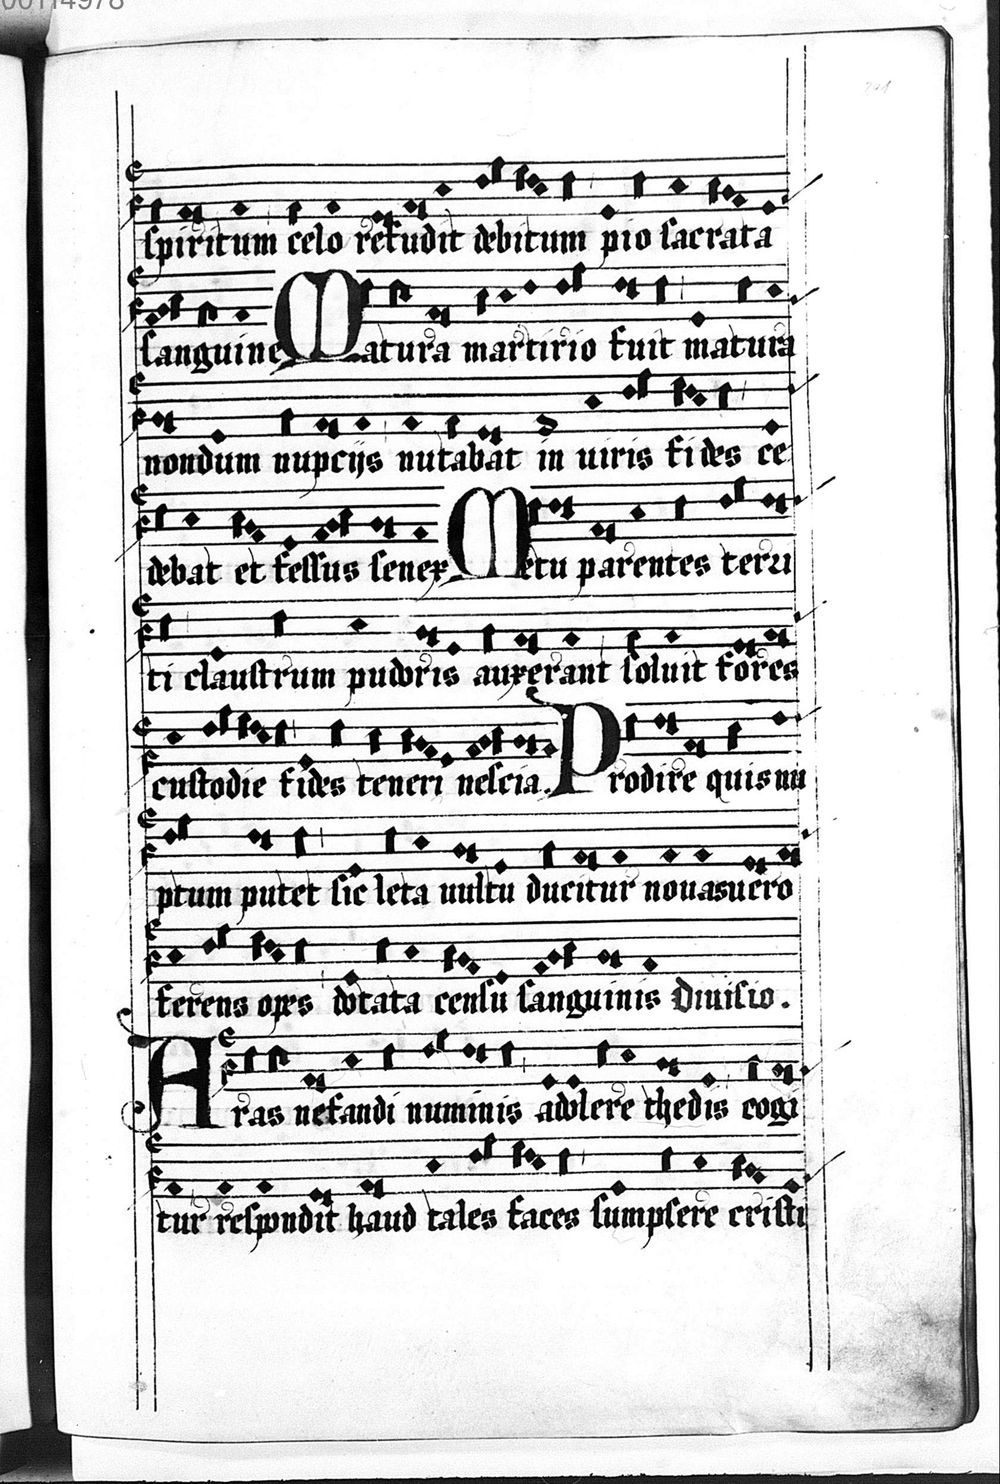 00114978
spiritum celo refudit debitum pio sacrata
sanguine Matura martirio fuit matura
nondum nupcijs nutabat in uiris fides ce
debat et fessus senex. Metu parentes terri
ti claustrum pudoris auxerant soluit fores
custodie fides teneri nescia. Prodire quis nu
ptum putet sic leta uultu ducitur nouas uero
ferens opes dotata censu sanguinis Diuisio.
Aras nefandi numinis adolere thedis cogi
tur respondit haud tales faces sumpsere cristi